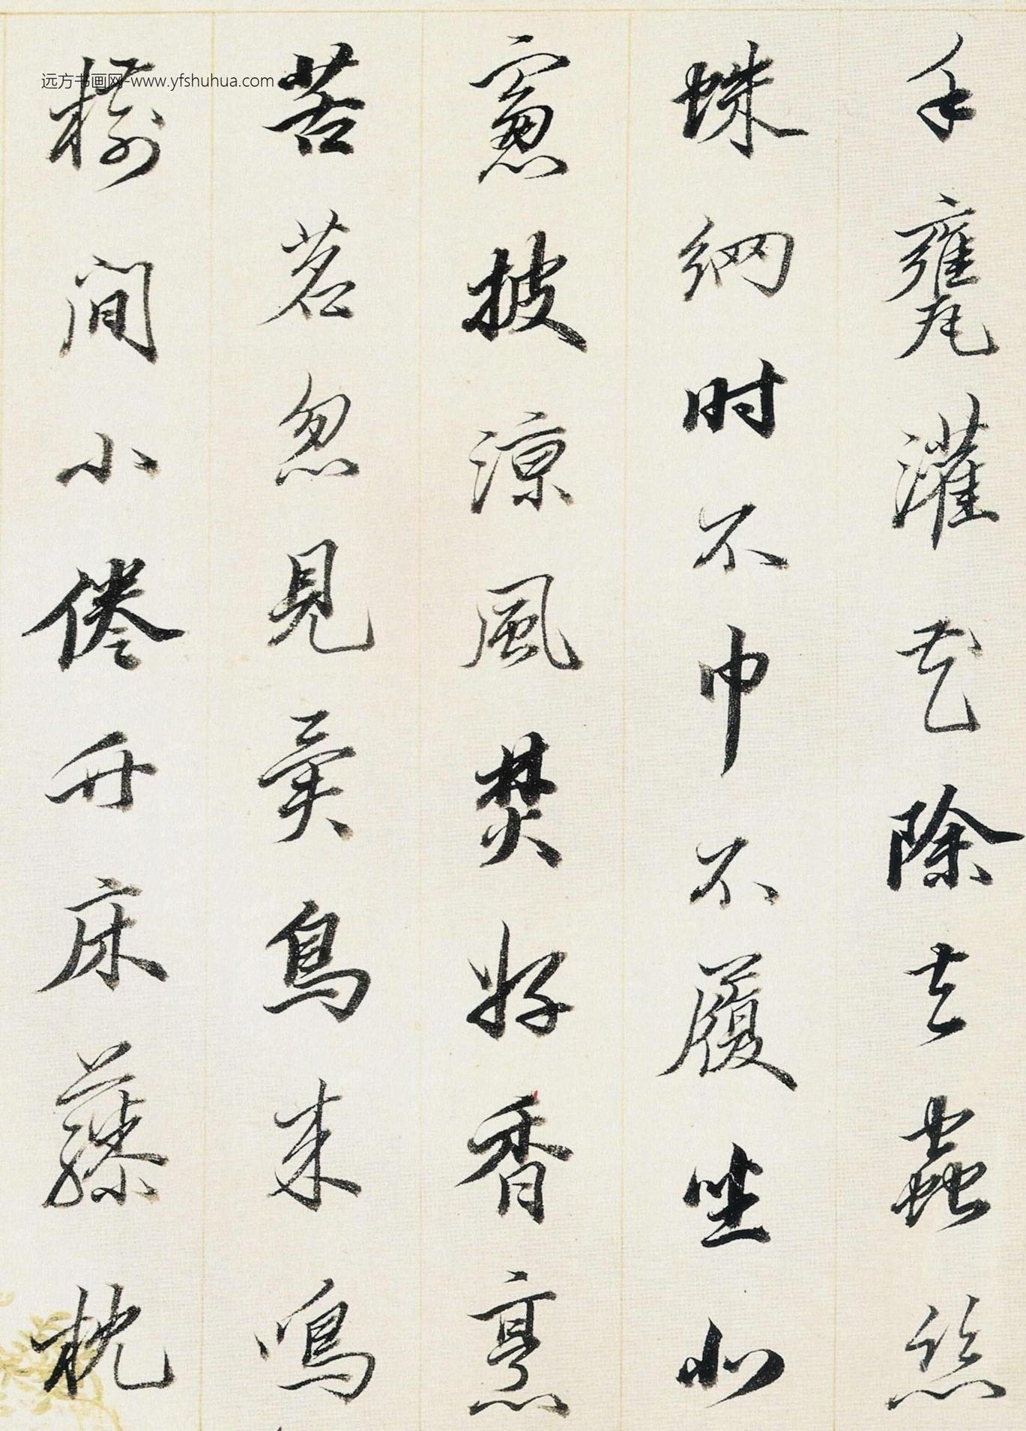 手甕灌花除去蟲絲
蛛網时不巾不履坐北
窻披涼風焚好香烹
苦茗忽見異鳥来鳴
樹間小倦即床藤枕
远方书画网-www.yfshuhua.com